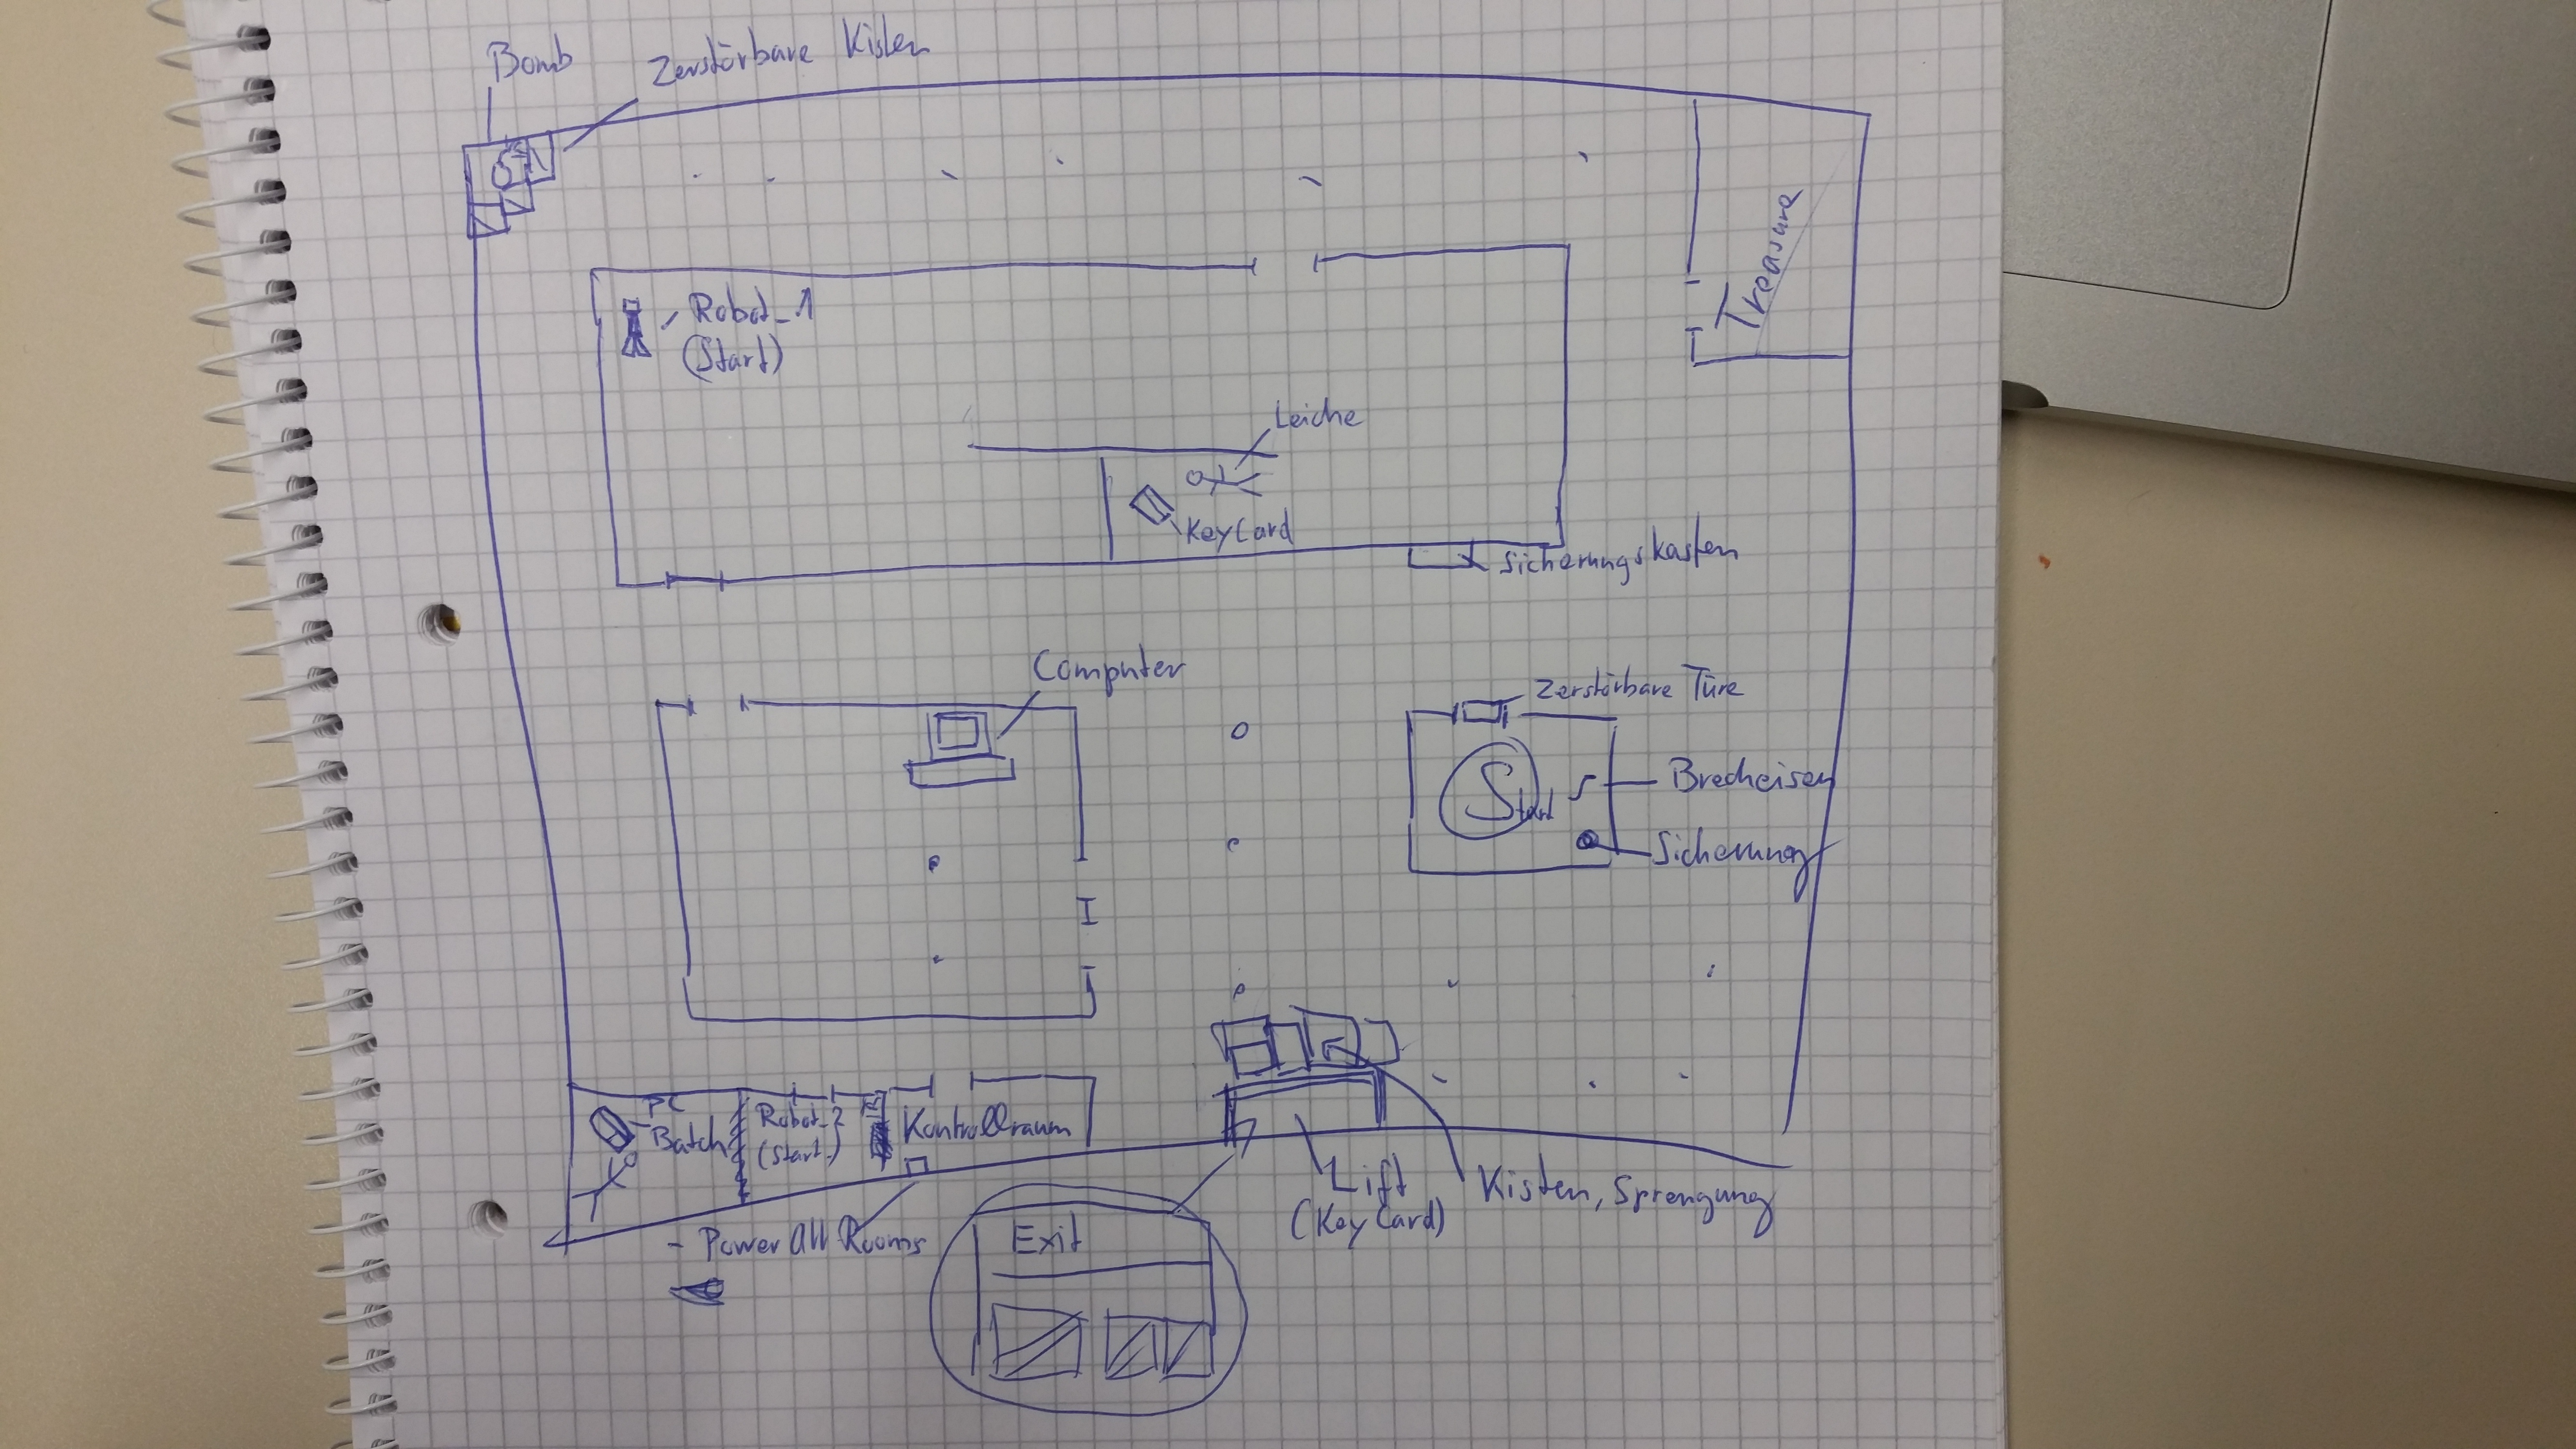 Bomb
Zerstörbare Kisten
Treasure
Robot_1
(Start)
Leiche
KeyCard
Sicherungskasten
Computer
Zerstörbare Türe
Start
Brecheisen
Sicherung
PC
Batch
Robot_2
(Start)
Kontrollraum
Lift
(KeyCard)
Kisten, Sprengung
- Power All Rooms
Exit